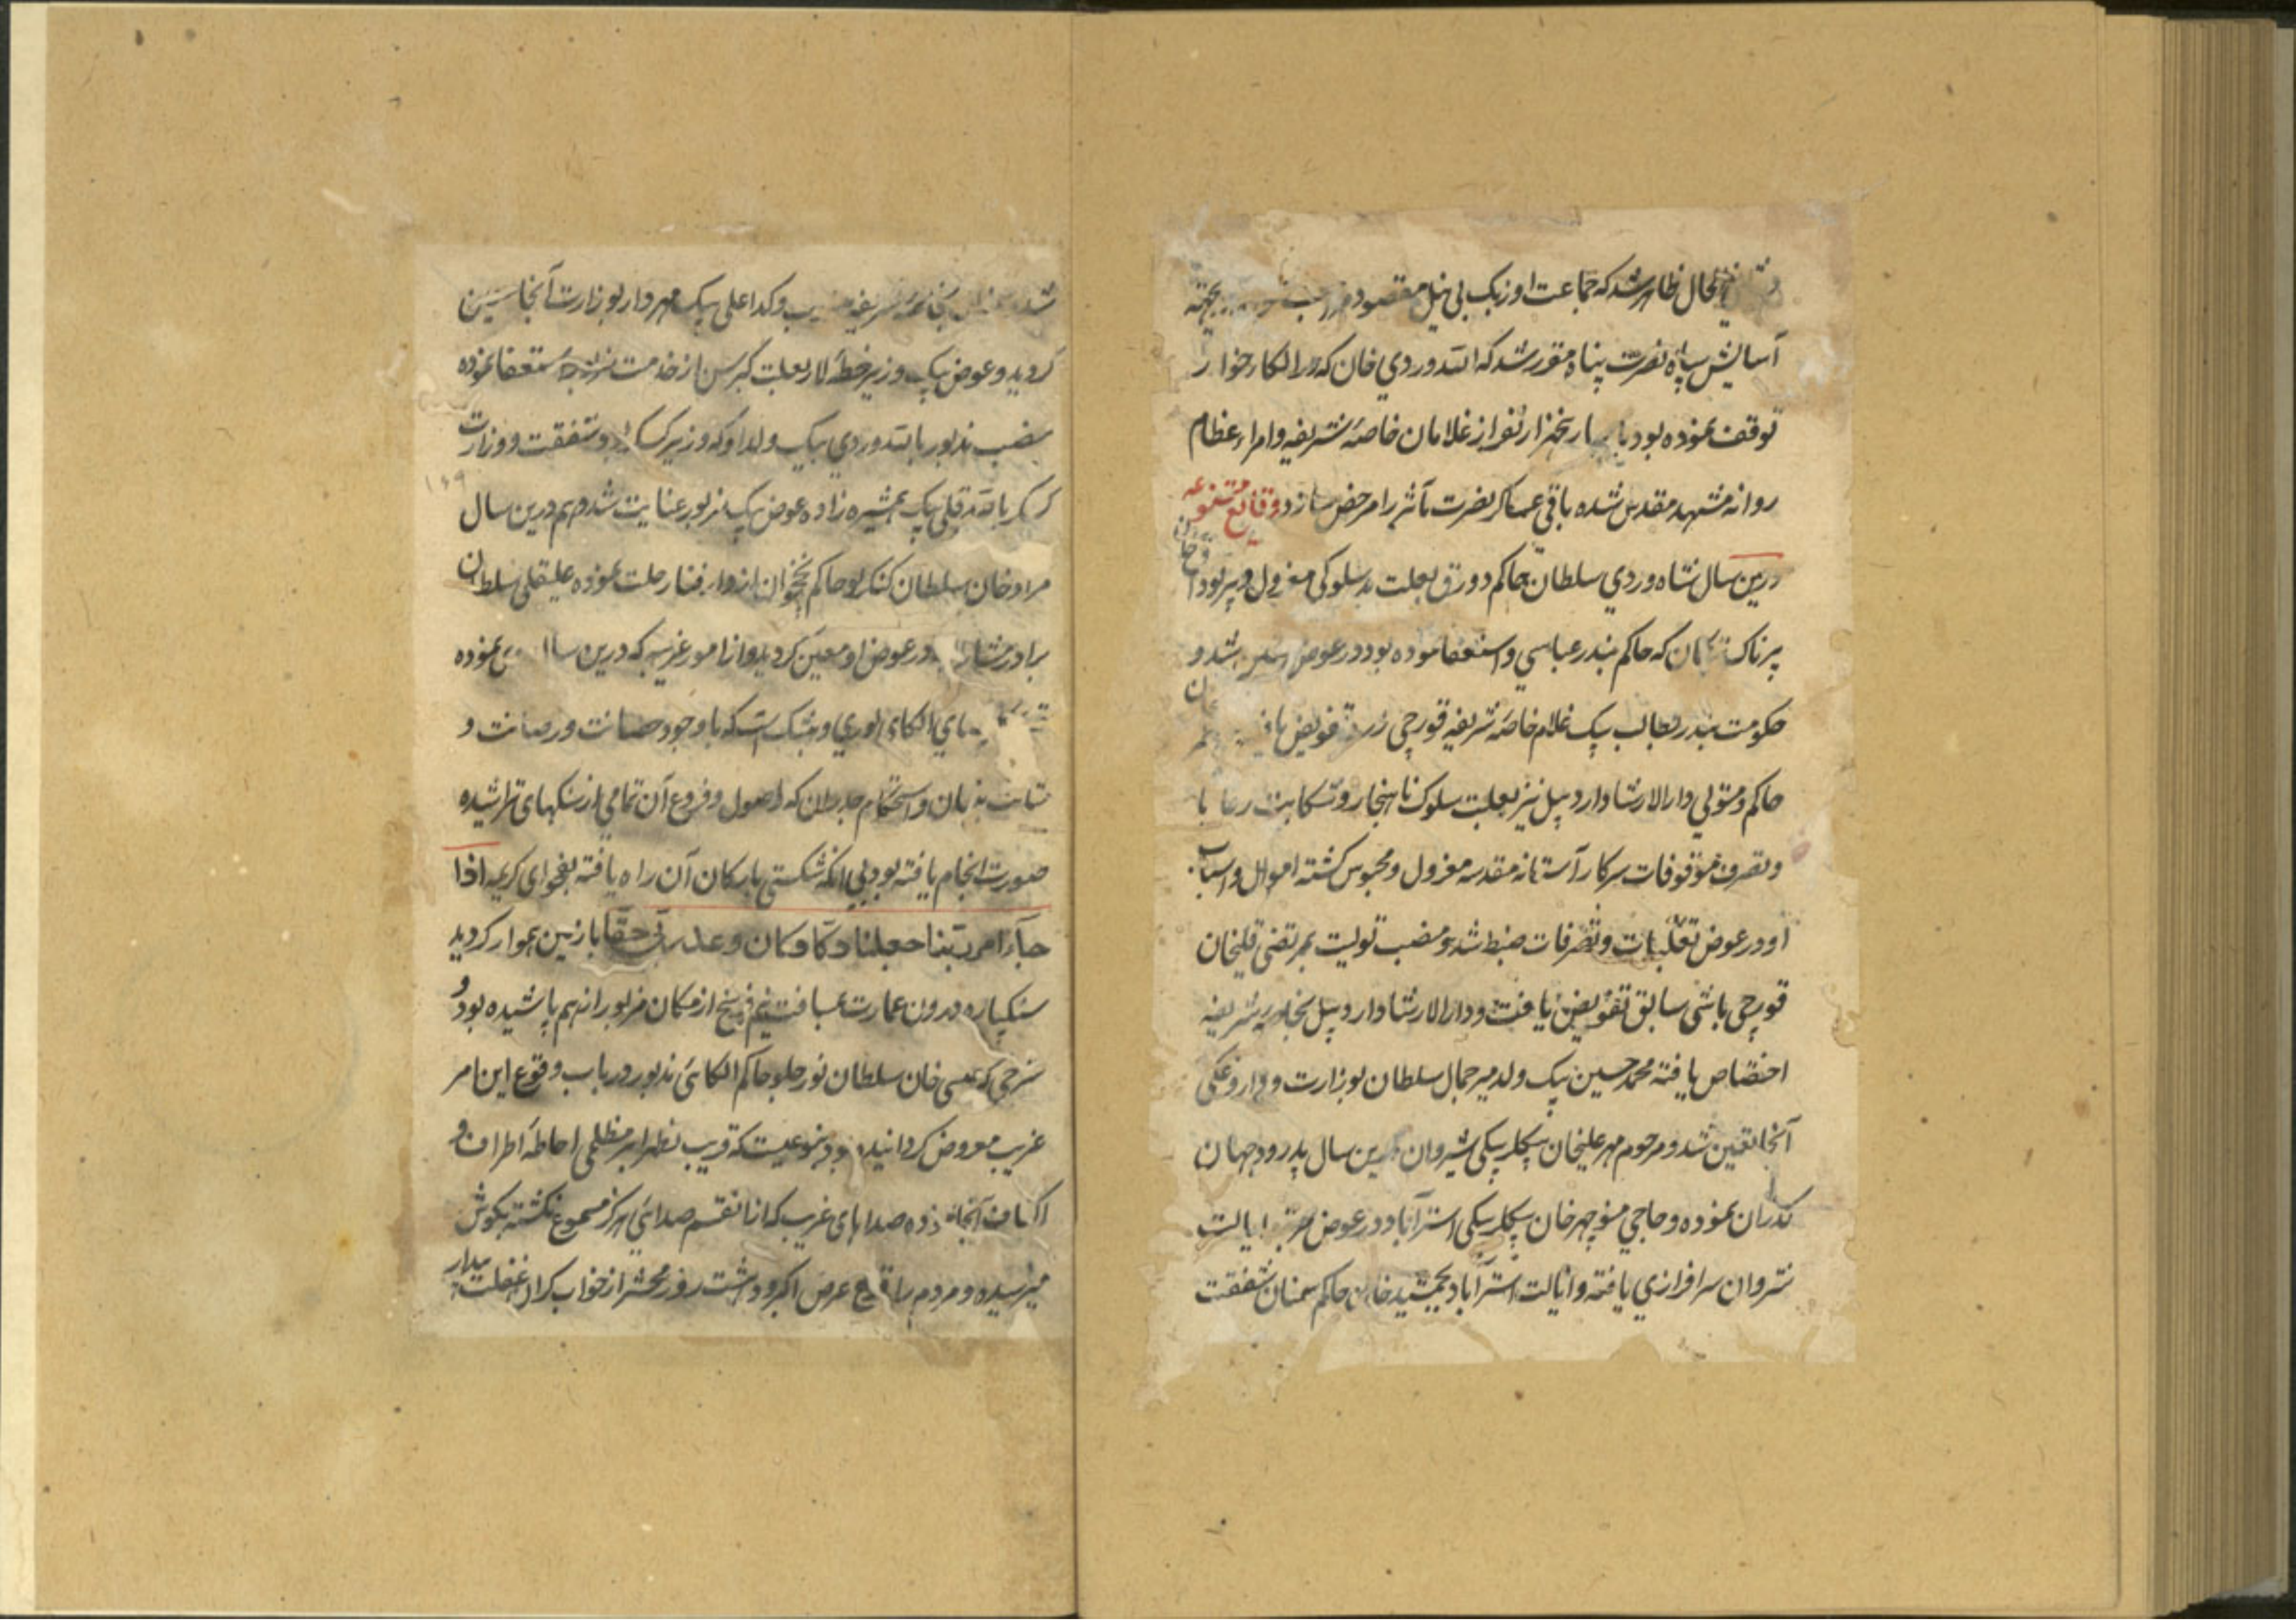 اینحال ظاهر شد که جماعت اوزبک بی نیل مقصود
آسایش سپاه نصرت پناه مقرر شد که الله وردی خان که در الکاء خوار
توقف نموده بود نفر از غلامان خاصه شریفه و امراء عظام
روانه مشهد مقدس شده باقی عساکر نصرت مآثر را مرخص سازد وقایع متنوعه
درین سال شاه وردی سلطان حاکم دورق بعلت بد سلوکی معزول و پیر بوداق خان
پرناک ترکمان که حاکم بندر عباسی و استعفا نموده بود در عوض شد و
حکومت بندر بطالب بیک غلام خاصه شریفه قورچی تفویض یافت
حاکم و متولی دارالارشاد اردبیل نیز بعلت سلوک ناهنجار و شکایت رعایا
و تصرف موقوفات سرکار آستانه مقدسه معزول و محبوس کشته اموال و اسباب
او در عوض تغلبات و تصرفات ضبط شد و منصب تولیت بمرتضی قلیخان
قورچی باشی سابق تفویض یافت و دارالارشاد اردبیل بخاصه شریفه
اختصاص یافته محمد حسین بیک ولد میر جمال سلطان بوزارت و داروغکی
آنجا تعیین شد و مرحوم مهر علیخان بیکلربیکی شیروان درین سال پدرود جهان
کذران نموده و حاجی منوچهر خان بیکلربیکی استرآباد در عوض بمرتبه ایالت
شروان سرافرازی یافته و ایالت استرآباد بجمشید خان حاکم سمنان شفقت
شد بخاصه شریفه و کدا علی بیک مهردار بوزارت آنجا تعیین
کردید و عوض بیک وزیر خطه لار بعلت کبر سن از خدمت استعفا نموده
منصب مذبور بالله وردی بیک ولد او که وزیر کسکر بود شفقت و وزارت
کسکر بالله قلی بیک همشیره زاده عوض بیک مزبور عنایت شد و هم درین سال
مراد خان سلطان کنکرلو حاکم نخجوان از دار فنا رحلت نموده علیقلی سلطان
برادر مشار الیه در عوض او معین کردید و از امور غریبه که درین سال نموده
الکاء لوری و پنبک است که با وجود حصانت و رصانت و
متانت بنیان و استحکام جدران که اصول و فروع آن تمامی از سنکهای تراشیده
صورت انجام یافته بود بی آنکه شکستی بارکان آن راه یافته بفحوای کریمه اذا
جاء امر ربنا جعلنا دکا وکان وعد ربی حقا با زمین هموار کردید
سنکپاره درون عمارت بمسافت نیم فرسخ از مکان مزبور از هم پاشیده بود و
شرحی که عیسی خان سلطان حاکم الکائی مذبور در باب وقوع این امر
غریب معروض کردانیده بود بنوعیست که قریب بظهر ابر مظلمی احاطه اطراف و
اکناف آنجا نموده صداهای غریب که از آنقسم صدائی هرکز مسموع نکشته بکوش
میرسیده و مردم را عرض اکبر و دهشت روز محشر از خواب کران غفلت بیدار